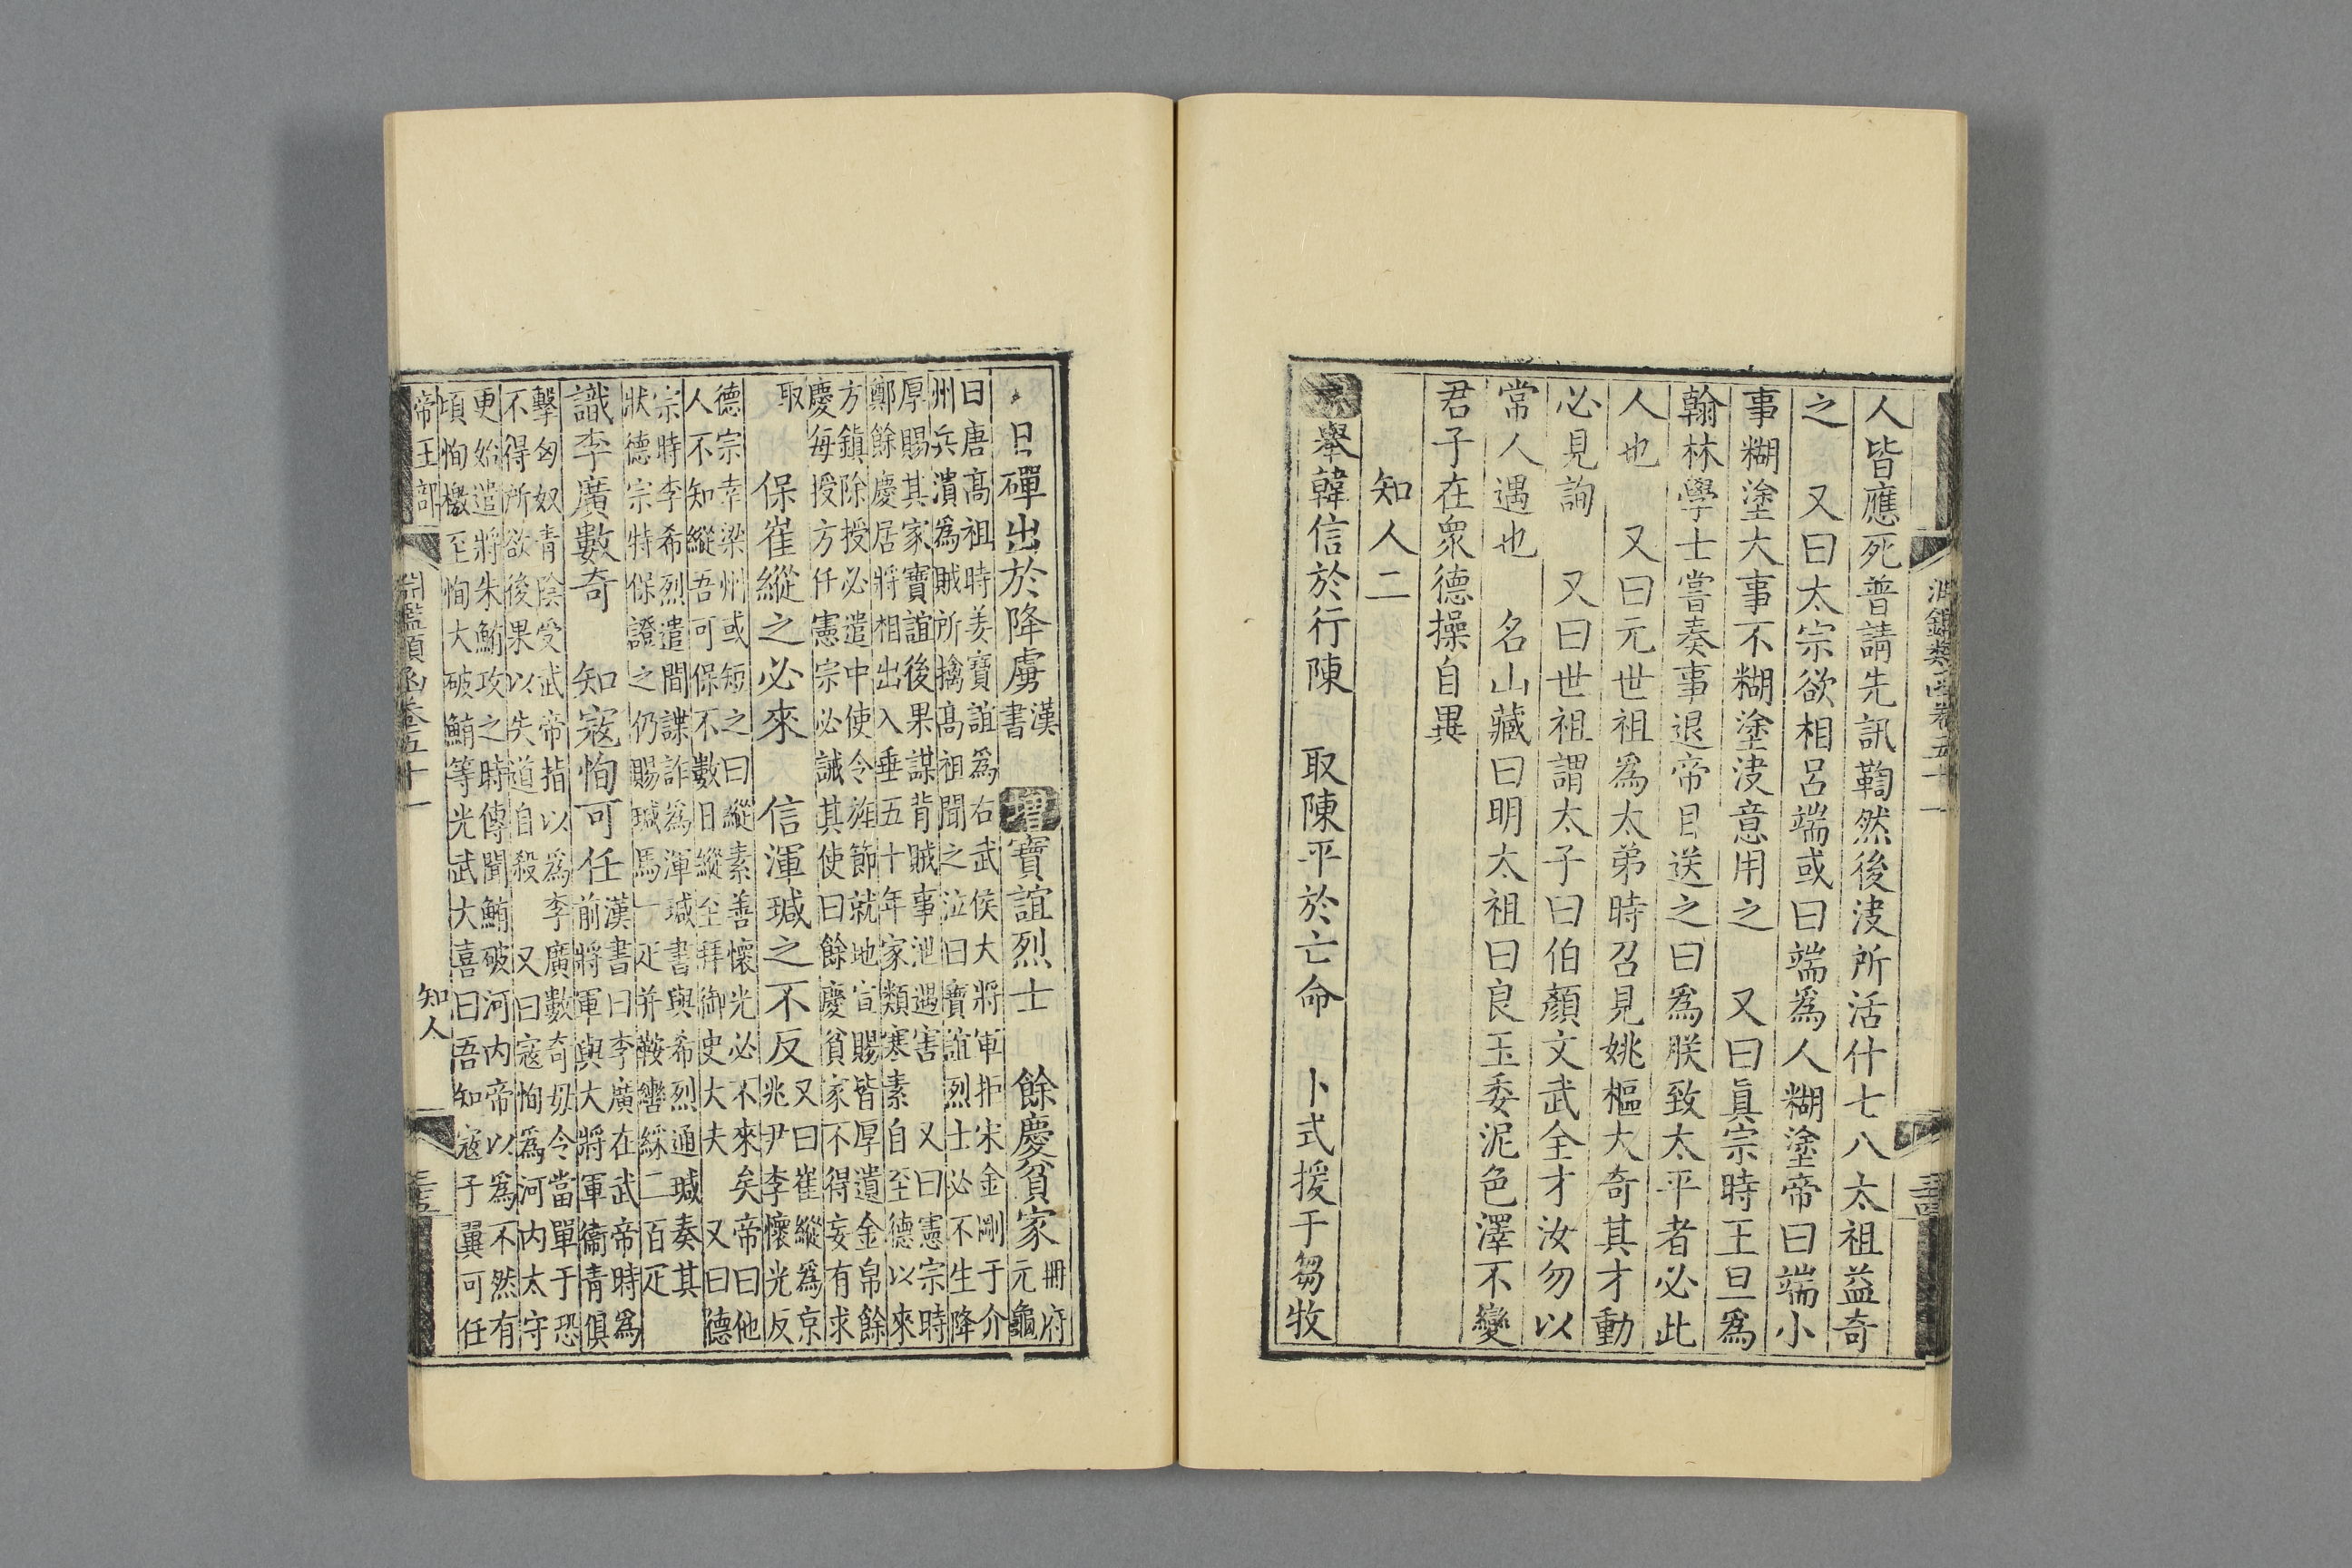 淵鑑類函卷五十一
人皆應死普請先訊鞫然後決所活什七八太祖益奇
之　又曰太宗欲相呂端或曰端爲人糊塗帝曰端小
事糊塗大事不糊塗決意用之　又曰眞宗時王旦爲
翰林學士嘗奏事退帝目送之曰爲朕致太平者必此
人也　又曰元世祖爲太弟時召見姚樞大奇其才動
必見詢　又曰世祖謂太子曰伯顏文武全才汝勿以
常人遇也　名山藏曰明太祖曰良玉委泥色澤不變
君子在衆德操自異
知人二
舉韓信於行陳　取陳平於亡命　卜式援于芻牧
日磾出於降虜漢書　增寶誼烈士　餘慶貧家冊府元龜
曰唐高祖時姜寶誼爲右武侯大將軍拒宋金剛于介
州兵潰爲賊所擒高祖聞之泣曰寶誼烈士必不生降
厚賜其家寶誼後果謀背賊事泄遇害　又曰憲宗時
鄭餘慶居將相出入垂五十年家類寒素自至德以來
方鎮除授必遣中使令旌節就地宣賜皆厚遺金帛餘
慶每授方任憲宗必誡其使曰餘慶貧家不得妄有求
取　保崔縱之必來　信渾瑊之不反又曰崔縱爲京
兆尹李懷光反
德宗幸梁州或短之曰縱素善懷光必不來矣帝曰他
人不知縱吾可保不數日縱至拜御史大夫　又曰德
宗時李希烈遣間諜詐爲渾瑊書與希烈通瑊奏其
狀德宗特保證之仍賜瑊馬一疋并鞍轡綵二百疋
識李廣數奇　知寇恂可任漢書曰李廣在武帝時爲
前將軍與大將軍衞青俱
擊匈奴青陰受武帝指以爲李廣數奇毋令當單于恐
不得所欲後果以失道自殺　又曰寇恂爲河內太守
更始遣將朱鮪攻之時傳聞鮪破河內帝以爲不然有
頃恂檄至恂大破鮪等光武大喜曰吾知寇子翼可任
帝王部
淵鑑類函卷五十一
知人